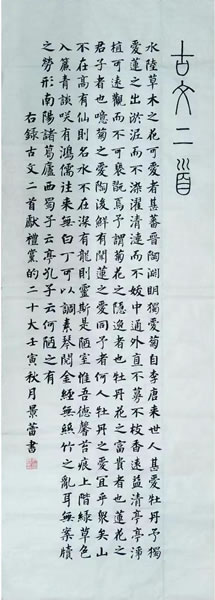 古文二首
水陸草木之花可愛者甚蕃晉陶淵明獨愛菊自李唐来世人甚愛牡丹予獨
愛蓮之出淤泥而不染濯清漣而不妖中通外直不蔓不枝香遠益清亭亭淨
植可遠觀而不可褻翫焉予謂菊花之隱逸者也牡丹花之富貴者也蓮花之
君子者也噫菊之愛陶後鮮有聞蓮之愛同予者何人牡丹之愛宜乎衆矣山
不在高有仙則名水不在深有龍則靈斯是陋室惟吾德馨苔痕上階緑草色
入簾青談咲有鴻儒往来無白丁可以調素琴閱金經無絲竹之亂耳無案牘
之勞形南陽諸葛廬西蜀子云亭孔子云何陋之有
右録古文二首獻禮黨的二十大壬寅秋月景蕾書